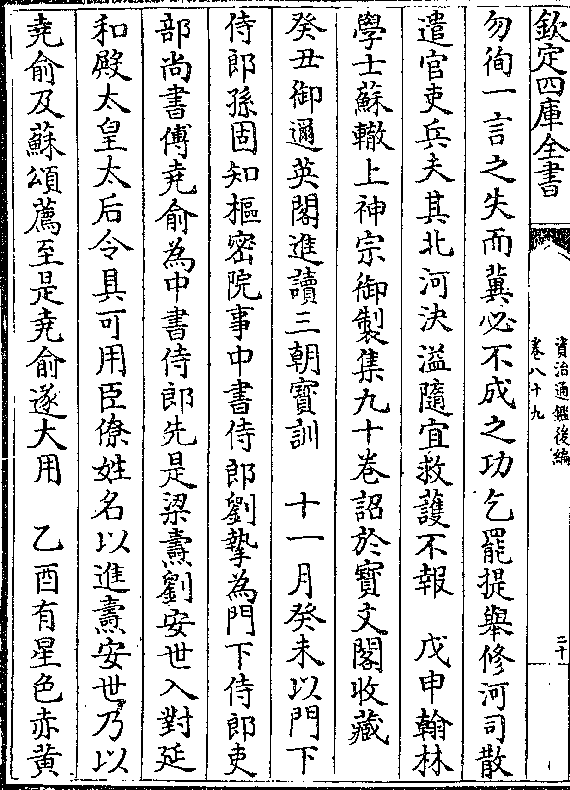 欽定四庫全書
資治通鑑後編
卷八十九
二十
勿徇一言之失而冀必不成之功乞罷提舉修河司散
遣官吏兵夫其北河決溢隨宜救護不報　戊申翰林
學士蘇轍上神宗御製集九十卷詔於寶文閣收藏
癸丑御邇英閣進讀三朝寶訓　十一月癸未以門下
侍郎孫固知樞密院事中書侍郎劉摯為門下侍郎吏
部尚書傅堯俞為中書侍郎先是梁燾劉安世入對延
和殿太皇太后令具可用臣僚姓名以進燾安世乃以
堯俞及蘇頌薦至是堯俞遂大用　乙酉有星色赤黃